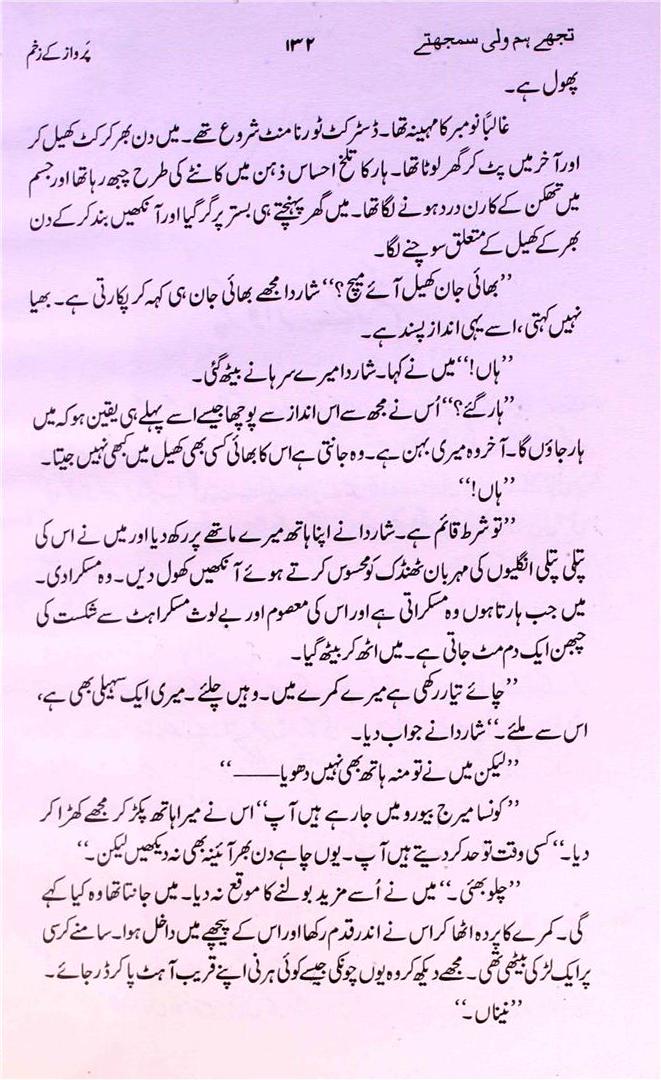 تجھے ہم ولی سمجھتے ۱۳۲ پَرواز کے زخم
پھول ہے۔
غالباً نومبر کا مہینہ تھا۔ ڈسٹرکٹ ٹورنامنٹ شروع تھے۔ میں دن بھر کرکٹ کھیل کر
اور آخر میں پٹ کر گھر لوٹا تھا۔ ہار کا تلخ احساس ذہن میں کانٹے کی طرح چبھ رہا تھا اور جسم
میں تھکن کے کارن درد ہونے لگا تھا۔ میں گھر پہنچتے ہی بستر پر گر گیا اور آنکھیں بند کر کے دن
بھر کے کھیل کے متعلق سوچنے لگا۔
’’بھائی جان کھیل آئے میچ؟‘‘ شاردا مجھے بھائی جان ہی کہہ کر پکارتی ہے۔ بھیا
نہیں کہتی، اسے یہی انداز پسند ہے۔
’’ہاں!‘‘ میں نے کہا۔ شاردا میرے سرہانے بیٹھ گئی۔
’’ہار گئے؟‘‘ اُس نے مجھ سے اس انداز سے پوچھا جیسے اسے پہلے ہی یقین ہو کہ میں
ہار جاؤں گا۔ آخر وہ میری بہن ہے۔ وہ جانتی ہے اس کا بھائی کسی بھی کھیل میں کبھی نہیں جیتا۔
’’ہاں!‘‘
’’تو شرط قائم ہے۔ شاردا نے اپنا ہاتھ میرے ماتھے پر رکھ دیا اور میں نے اس کی
پتلی پتلی انگلیوں کی مہربان ٹھنڈک کو محسوس کرتے ہوئے آنکھیں کھول دیں۔ وہ مسکرا دی۔
میں جب ہارتا ہوں وہ مسکراتی ہے اور اس کی معصوم اور بے لوث مسکراہٹ سے شکست کی
چبھن ایک دم مٹ جاتی ہے۔ میں اٹھ کر بیٹھ گیا۔
’’چائے تیار رکھی ہے میرے کمرے میں۔ وہیں چلئے۔ میری ایک سہیلی بھی ہے،
اس سے ملئے۔‘‘ شاردا نے جواب دیا۔
’’لیکن میں نے تو منہ ہاتھ بھی نہیں دھویا——‘‘
’’کونسا میرج بیورو میں جا رہے ہیں آپ‘‘ اس نے میرا ہاتھ پکڑ کر مجھے کھڑا کر
دیا۔ ’’کسی وقت تو حد کر دیتے ہیں آپ۔ یوں چاہے دن بھر آئینہ بھی نہ دیکھیں لیکن۔‘‘
’’چلو بھئی۔‘‘ میں نے اُسے مزید بولنے کا موقع نہ دیا۔ میں جانتا تھا وہ کیا کہے
گی۔ کمرے کا پردہ اٹھا کر اس نے اندر قدم رکھا اور اس کے پیچھے میں داخل ہوا۔ سامنے کرسی
پر ایک لڑکی بیٹھی تھی۔ مجھے دیکھ کر وہ یوں چونکی جیسے کوئی ہرنی اپنے قریب آہٹ پا کر ڈر جائے۔
’’نیناں۔‘‘